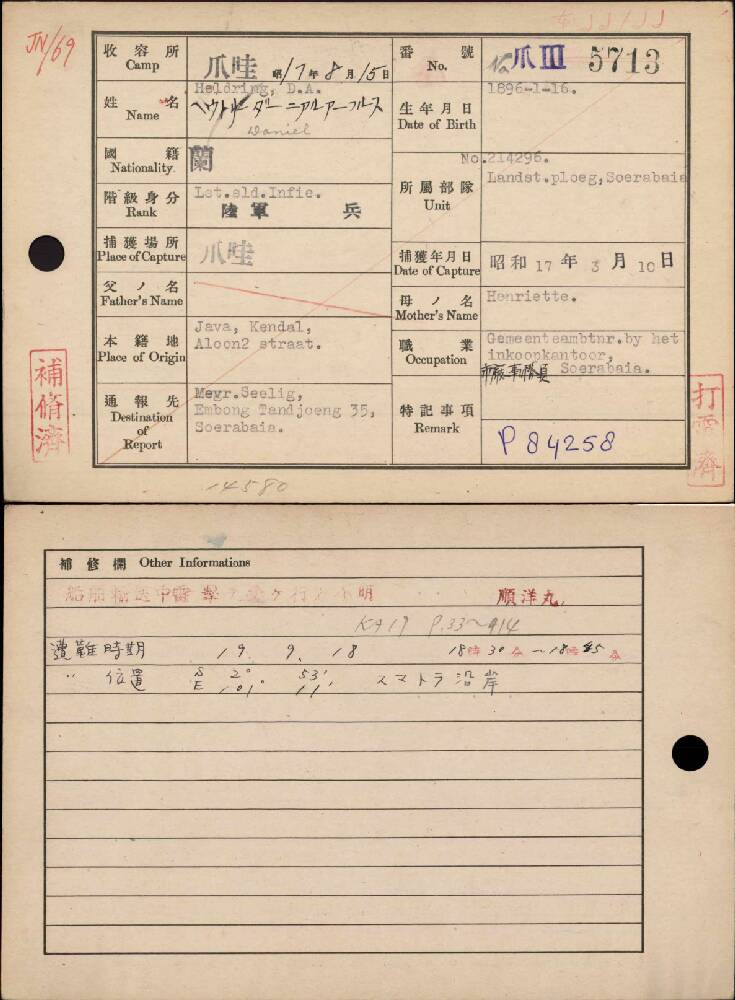 JN/69
收容所
Camp
爪哇 昭17年8月15日
番號
No.
仮 爪III 5713
姓名
Name
Heldring, D.A.
Daniel
生年月日
Date of Birth
1896-1-16.
國籍
Nationality
蘭
所屬部隊
Unit
No.214296.
Landst.ploeg,Soerabaia
階級身分
Rank
Lst.sld.Infie.
陸軍 兵
捕獲場所
Place of Capture
爪哇
捕獲年月日
Date of Capture
昭和17年3月10日
父ノ名
Father's Name
母ノ名
Mother's Name
Henriette.
本籍地
Place of Origin
Java, Kendal,
Aloon2 straat.
職業
Occupation
Gemeenteambtnr.by het
inkoopkantoor,
Soerabaia.
通報先
Destination
of
Report
Mevr.Seelig,
Embong Tandjoeng 35,
Soerabaia.
特記事項
Remark
P 84258
補脩濟
打電濟
14580
補修欄 Other Informations
船舶輸送中雷撃ヲ受ケ行方不明 順洋丸
P.33~914
遭難時期 19. 9. 18 18時30分~18時45分
〃 位置 S 2° 53'
E 101° 11' スマトラ沿岸